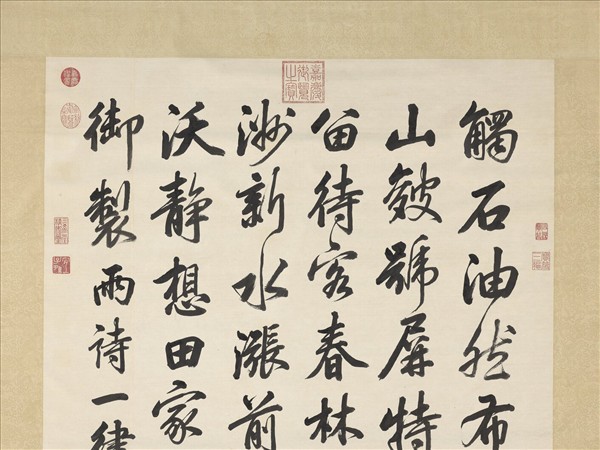 觸石油然布
山皴號屏特
留待客春林
洲新水漲前
沃靜想田家
御製雨詩一律
嘉慶御覽之寶